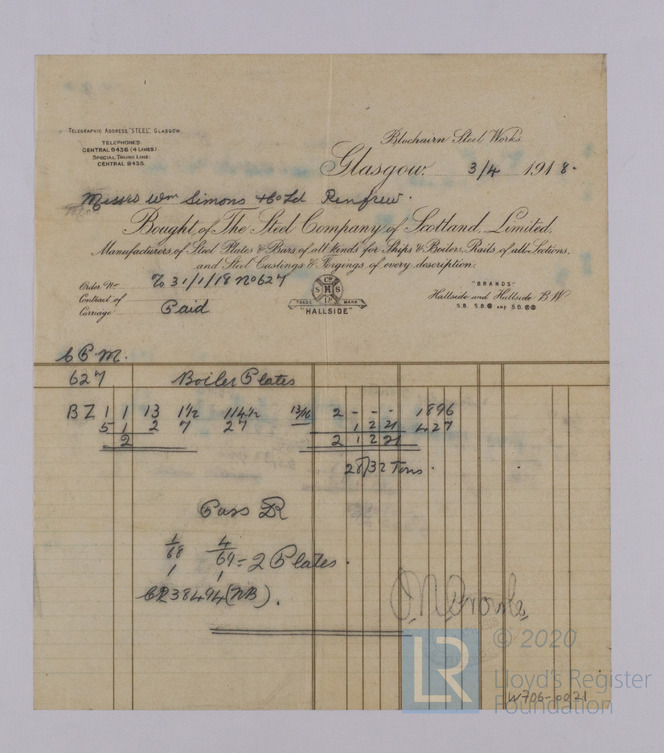 TELEGRAPHIC ADDRESS "STEEL" GLASGOW.
TELEPHONES
CENTRAL 8435 (4 LINES)
SPECIAL TRUNK LINE:
CENTRAL 8435.
Blochairn Steel Works
Glasgow. 3/4 1918.
Messrs Wm Simons & Co Ld Renfrew.
Bought of The Steel Company of Scotland, Limited.
Manufacturers of Steel Plates & Bars of all kinds for Ships & Boilers, Rails of all Sections,
and Steel Castings & Forgings of every description.
Order No 31/1/18 No 627
Contract of
Carriage Paid
TRADE MARK
"HALLSIDE"
"BRANDS"
Hallside and Hallside B.W
627 Boiler Plates
BZ 1 1 13 1½ 114½ 13/16 2 - - - 1896
5 1 2 7 27 1 2 21 427
2 2 1 2 21
28/32 Tons.
Pass
1/68 4/69 = 2 Plates.
1 1
38494 (NB).
© 2020
LR
Lloyd's Register
Foundation
W706-0021